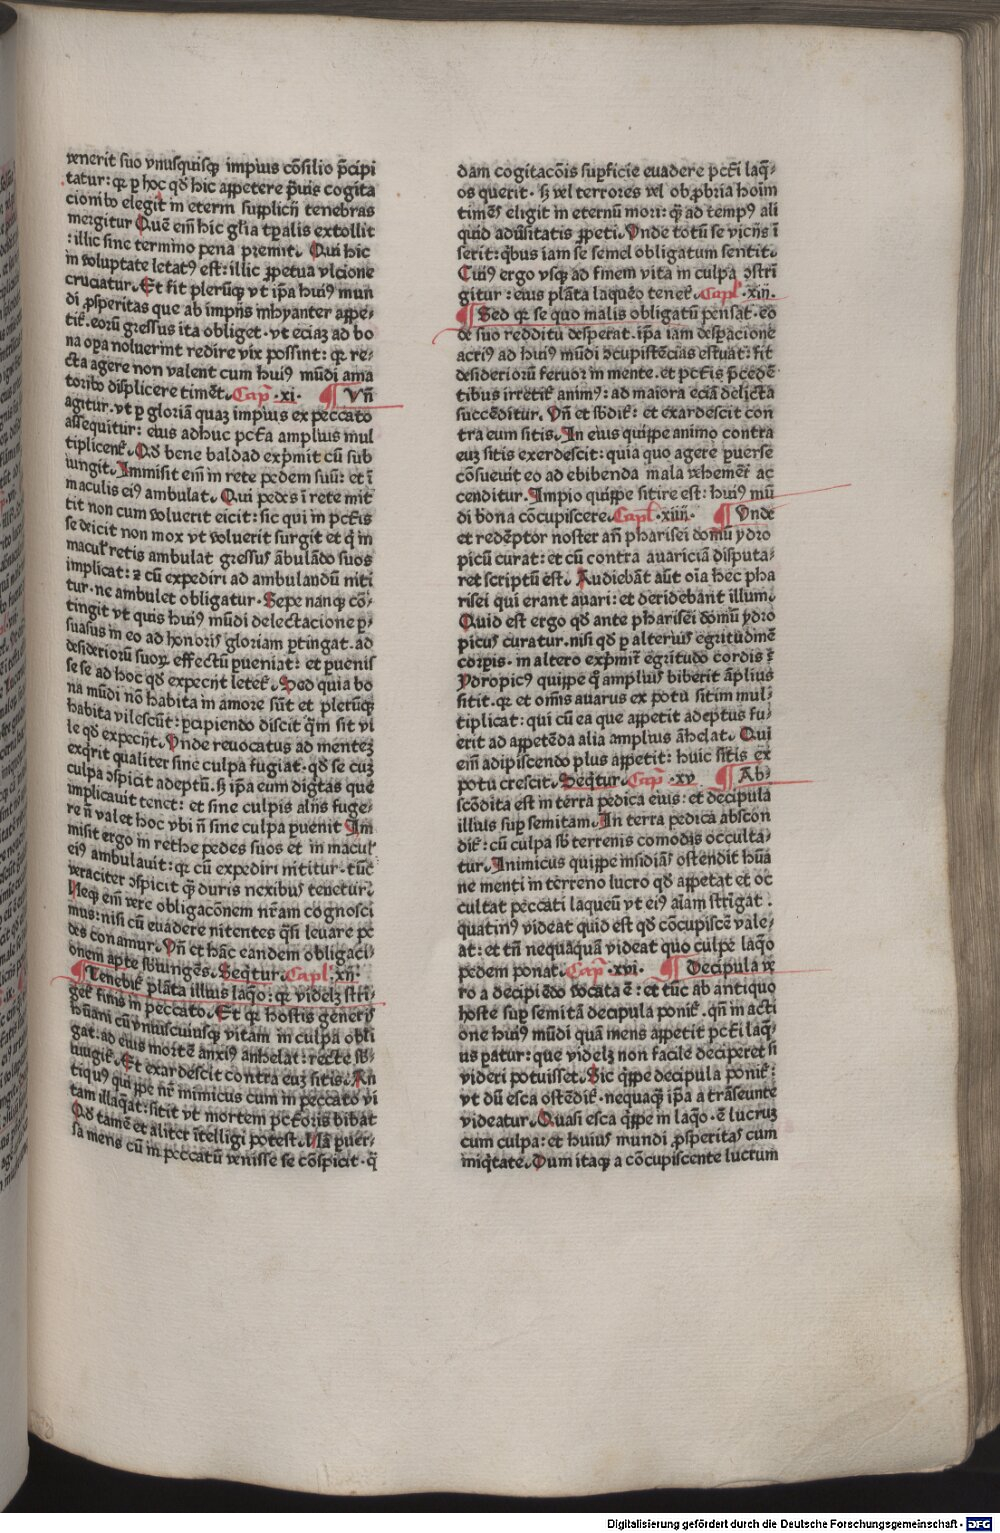 venerit suo vnusquisqꝫ impius cōsilio p̄cipi
tatur: qꝛ ꝑ hoc qđ hic appetere p̄uis cogita
cionib⁹ elegit in eterm̄ supplicij tenebras
mergitur Quē em̄ hic gl̄ia tꝑalis extollit
: illic sine termino pena premit. Qui hic
in voluptate letat⁹ est: illic ꝓpetua vlcione
cruciatur. Et fit pleruꝙ vt ip̄a hui⁹ mun
di ꝓsperitas que ab impijs inhyanter appe-
tit᷑. eorū gressus ita obliget. vt eciaꝫ ad bo
na oꝑa noluerint redire vix possint: qꝛ re-
cta agere non valent cum hui⁹ mūdi ama
torib⁹ displicere timēt. Cap̄. xi. ¶ Vn̄
agitur. vt ꝑ gloriā quaꝫ impius ex peccato
assequitur: eius adhuc pctā amplius mul
tiplicent᷑. Qđ bene baldad exp̄mit cū sub
iungit. Immisit em̄ in rete pedem suū: et ī
maculis ei⁹ ambulat. Qui pedes ī rete mit
tit non cum voluerit eicit: sic qui in pctīs
se deicit non mox vt voluerit surgit et q̇ in
macul᷑ retis ambulat gressus ābulādo suos
implicat: ⁊ cū expediri ad ambulandū niti
tur. ne ambulet obligatur. Sepe nanqꝫ cō-
tingit vt quis hui⁹ mūdi delectacione ꝑ-
suasus in eo ad honoris gloriam ꝑtingat. ad
desideriorū suoꝝ effectū ꝑueniat: et ꝑuenis
se se ad hoc qđ expecijt letet᷑. Sed quia bo
na mūdi nō habita in amore sūt et pleruꝙ
habita vilescūt: ꝑcipiendo discit q̄m sit vi
le qđ expecijt. Vnde reuocatus ad menteꝫ
exq̇rit qualiter sine culpa fugiat. qđ se cuꝫ
culpa ꝯspicit adeptū. Sꝫ ip̄a eum digtas que
implicauit tenet: et sine culpis alijs fuge-
re n̄ valet hoc vbi n̄ sine culpa ꝑuenit Im
misit ergo in rethe pedes suos et in macul᷑
ei⁹ ambulauit: qꝛ cū expediri nititur. tūc
veraciter ꝯspicit q̄ꝫ duris nexibus tenetur.
Neqꝫ em̄ vere obligacōnem nr̄am cognosci
mus: nisi cū euadere nitentes q̄si leuare pe
des conamur. Vn̄ et hāc eandem obligaci-
onem apte sb̄iungēs. Seq̇tur. Capl̄. xij.
¶ Tenebit᷑ plāta illius laq̇o: qꝛ videlꝫ stri-
get᷑ finis in peccato. Et qꝛ hostis gener̄
hūani cū vniuscuiusqꝫ vitam in culpa obli
gat. ad eius mortē anxi⁹ anhelat: recte sb̄-
iungit᷑. Et exardescit contra euꝫ sitis. An
tiqu⁹ quippe nr̄ inimicus cum in peccato vi
tam illaq̄at: sitit vt mortem pctōris bibat
Qđ tamē et aliter ītelligi potest. Nā ꝑuer-
sa mens cū in peccatū venisse se cōspicit. q̄
dam cogitacōis suꝑficie euadere pctī laq̄-
os querit. sꝫ vel terrores vel obꝓbria hoīm
timēs eligit in eternū mori: q̄ꝫ ad temp⁹ ali
quid adūsitatis ꝓpeti. Vnde totū se vicijs ī
serit: q̇bus iam se semel obligatum sentit.
Cui⁹ ergo vsqꝫ ad finem vita in culpa ꝯstrī
gitur: eius plāta laqueo tenet᷑. Capl̄. xiij.
¶ Sed qꝛ se quo malis obligatū pensat. eo
de suo redditu desperat. ip̄a iam desꝑacione
acri⁹ ad hui⁹ mūdi ꝯcupistēcias estuat: fit
desideriorū feruor in mente. et pctīs p̄cedē-
tibus irretit᷑ anim⁹: ad maiora eciā delicta
succēditur. Vn̄ et sb̄dit᷑: et exardescit con
tra eum sitis. In eius quippe animo contra
euꝫ sitis exerdescit: quia quo agere ꝑuerse
cōsueuit eo ad ebibenda mala vehemēt᷑ ac
cenditur. Impio quippe sitire est: hui⁹ mū
di bona cōcupiscere. Capl̄. xiiij. ¶ Vnde
et redēptor noster an̄ pharisei domū ydro
picū curat: et cū contra auariciā disputa-
ret scriptū est. Audiebāt aūt oīa hec pha
risei qui erant auari: et deridebant illum.
Quid est ergo qđ ante pharisei domū ydro
picus curatur. nisi qđ ꝑ alterius egritudinē
corꝑis. in altero exp̄mit᷑ egritudo cordis ē
Ydropic⁹ quippe q̇ amplius biberit āplius
sitit. qꝛ et om̄s auarus ex potu sitim mul-
tiplicat: qui cū ea que appetit adeptus fu-
erit ad appetēda alia amplius āhelat. Qui
em̄ adipiscendo plus appetit: huic sitis ex
potu crescit. Seq̇tur. Cap̄. xv ¶ Ab-
scōdita est in terra pedica eius: et decipula
illius suꝑ semitam. In terra pedica abscon
dit᷑: cū culpa sb̄ terrenis comodis occulta-
tur. Inimicus quippe insidiās ostendit hūa
ne menti in terreno lucro qđ appetat et oc
cultat peccati laqueū vt ei⁹ aīam strīgat.
quatin⁹ videat quid est qđ cōcupiscē vale-
at: et tn̄ nequaquā videat quo culpe laq̇o
pedem ponat. Cap̄. xvi. ¶ Decipula ve
ro a decipiēdo vocata ē: et tūc ab antiquo
hoste suꝑ semitā decipula ponit᷑. qn̄ in acti
one hui⁹ mūdi quā mens appetit pctī laq̄-
us paratur: que videlꝫ non facile deciperet si
videri potuisset. Sic q̇ppe decipula ponit᷑:
vt dū esca ostēdit᷑. nequaqꝫ ip̄a a trāseunte
videatur. Quasi esca q̇ppe in laq̇o. ē lucruꝫ
cum culpa: et huius mundi ꝓsperitas cum
iniq̇tate. Dum itaqꝫ a cōcupiscente lucrum
Digitalisierung gefördert durch die Deutsche Forschungsgemeinschaft - DFG